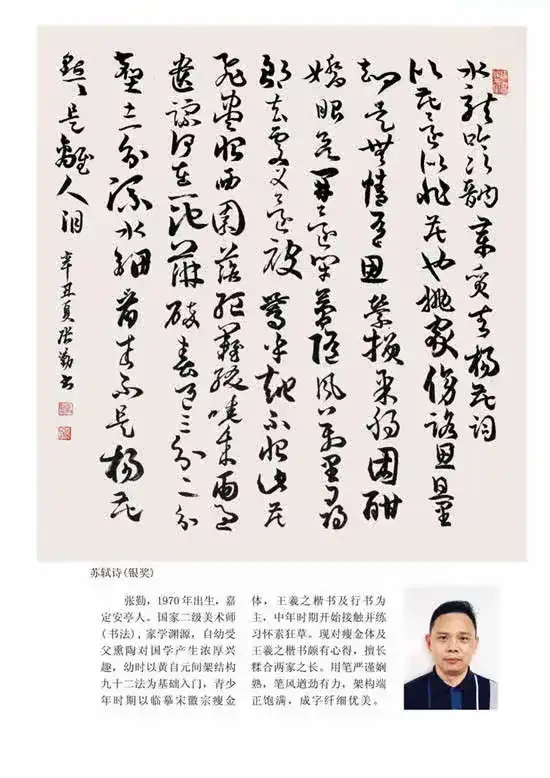 水龍吟次韵章質夫楊花詞
似花還似非花也抛家傍路思量
却是無情有思縈損柔腸困酣
嬌眼欲開還閉夢隨風萬里尋
郎去處又還被鶯呼起不恨此花
飛盡恨西園落紅難綴曉來雨過
遺蹤何在一池萍碎春色三分二分
塵土一分流水細看來不是楊花
點點是離人泪 辛丑夏張勤書
苏轼诗(银奖)
张勤，1970年出生，嘉
定安亭人。国家二级美术师
(书法)，家学渊源，自幼受
父熏陶对国学产生浓厚兴
趣，幼时以黄自元间架结构
九十二法为基础入门，青少
年时期以临摹宋徽宗瘦金
体，王羲之楷书及行书为
主，中年时期开始接触并练
习怀素狂草。现对瘦金体及
王羲之楷书颇有心得，擅长
糅合两家之长。用笔严谨娴
熟，笔风遒劲有力，架构端
正饱满，成字纤细优美。